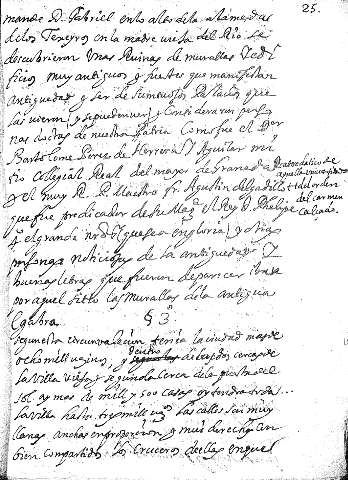 25.
manos D. Gabriel en lo alto de la alameda
de los Teneros en la madre vieja del Rio se
descubrieron unas Ruinas de murallas y edi
ficios muy antiguos y fuertes que manifiestan
antiguedad y ser de sumptuosos Palacios que
las vieron y se pueden ver y consideraron perso
nas doctas de nuestra Patria como fue el Dor
Bartolome Perez de Herrera y Aguilar nu
tio Colegial Real del mayor de Granada Catedratico de
aquella universidad
y el muy R. P. Maestro fr. Agustin delgadillo del orden
del carmen
calzado
que fue predicador de su Magd. el Rey D. Phelipe
4º el grande nro Sor (que sea en gloria) y otras
personas noticiosas de la antiguedad y
buenas letras que fueron de parecer iban
por aquel sitio las murallas de la antigua
Cabra.
§ 3º
segun esta circunvalacion tenia la ciudad mas de
ocho mill vezinos, y dentro de las dos cercas de
la villa vieja y segunda cerca de la puerta del
sol ay mas de mill y 500 casas
la villa hasta tres mill vos las calles son muy
llanas anchas en proporcion y muy derechas an
bien compartidas los cruceros de ellas en quel